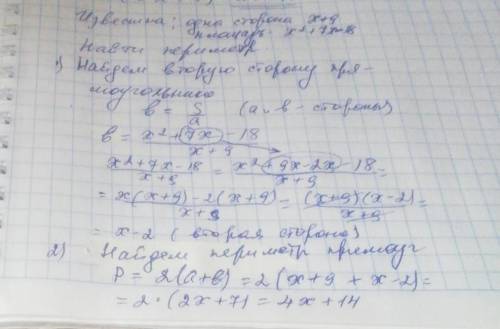 Известна: одна сторона x+9
площадь x²+7x-18
Найти периметр
1) Найдем вторую сторону пря-
моугольника
b = S/a (a и b - стороны)
b = (x²+7x-18)/(x+9)
(x²+7x-18)/(x+9) = (x²+9x-2x-18)/(x+9) =
= (x(x+9)-2(x+9))/(x+9) = ((x+9)(x-2))/(x+9) =
= x-2 (вторая сторона)
2) Найдем периметр прямоуг
P = 2(a+b) = 2(x+9+x-2) =
= 2·(2x+7) = 4x+14